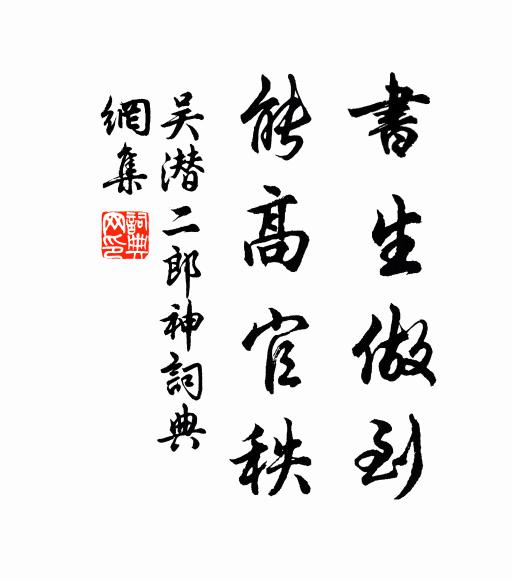 書生做到
能高官秩
吴潜二郎神詞典
網集
詞典網印